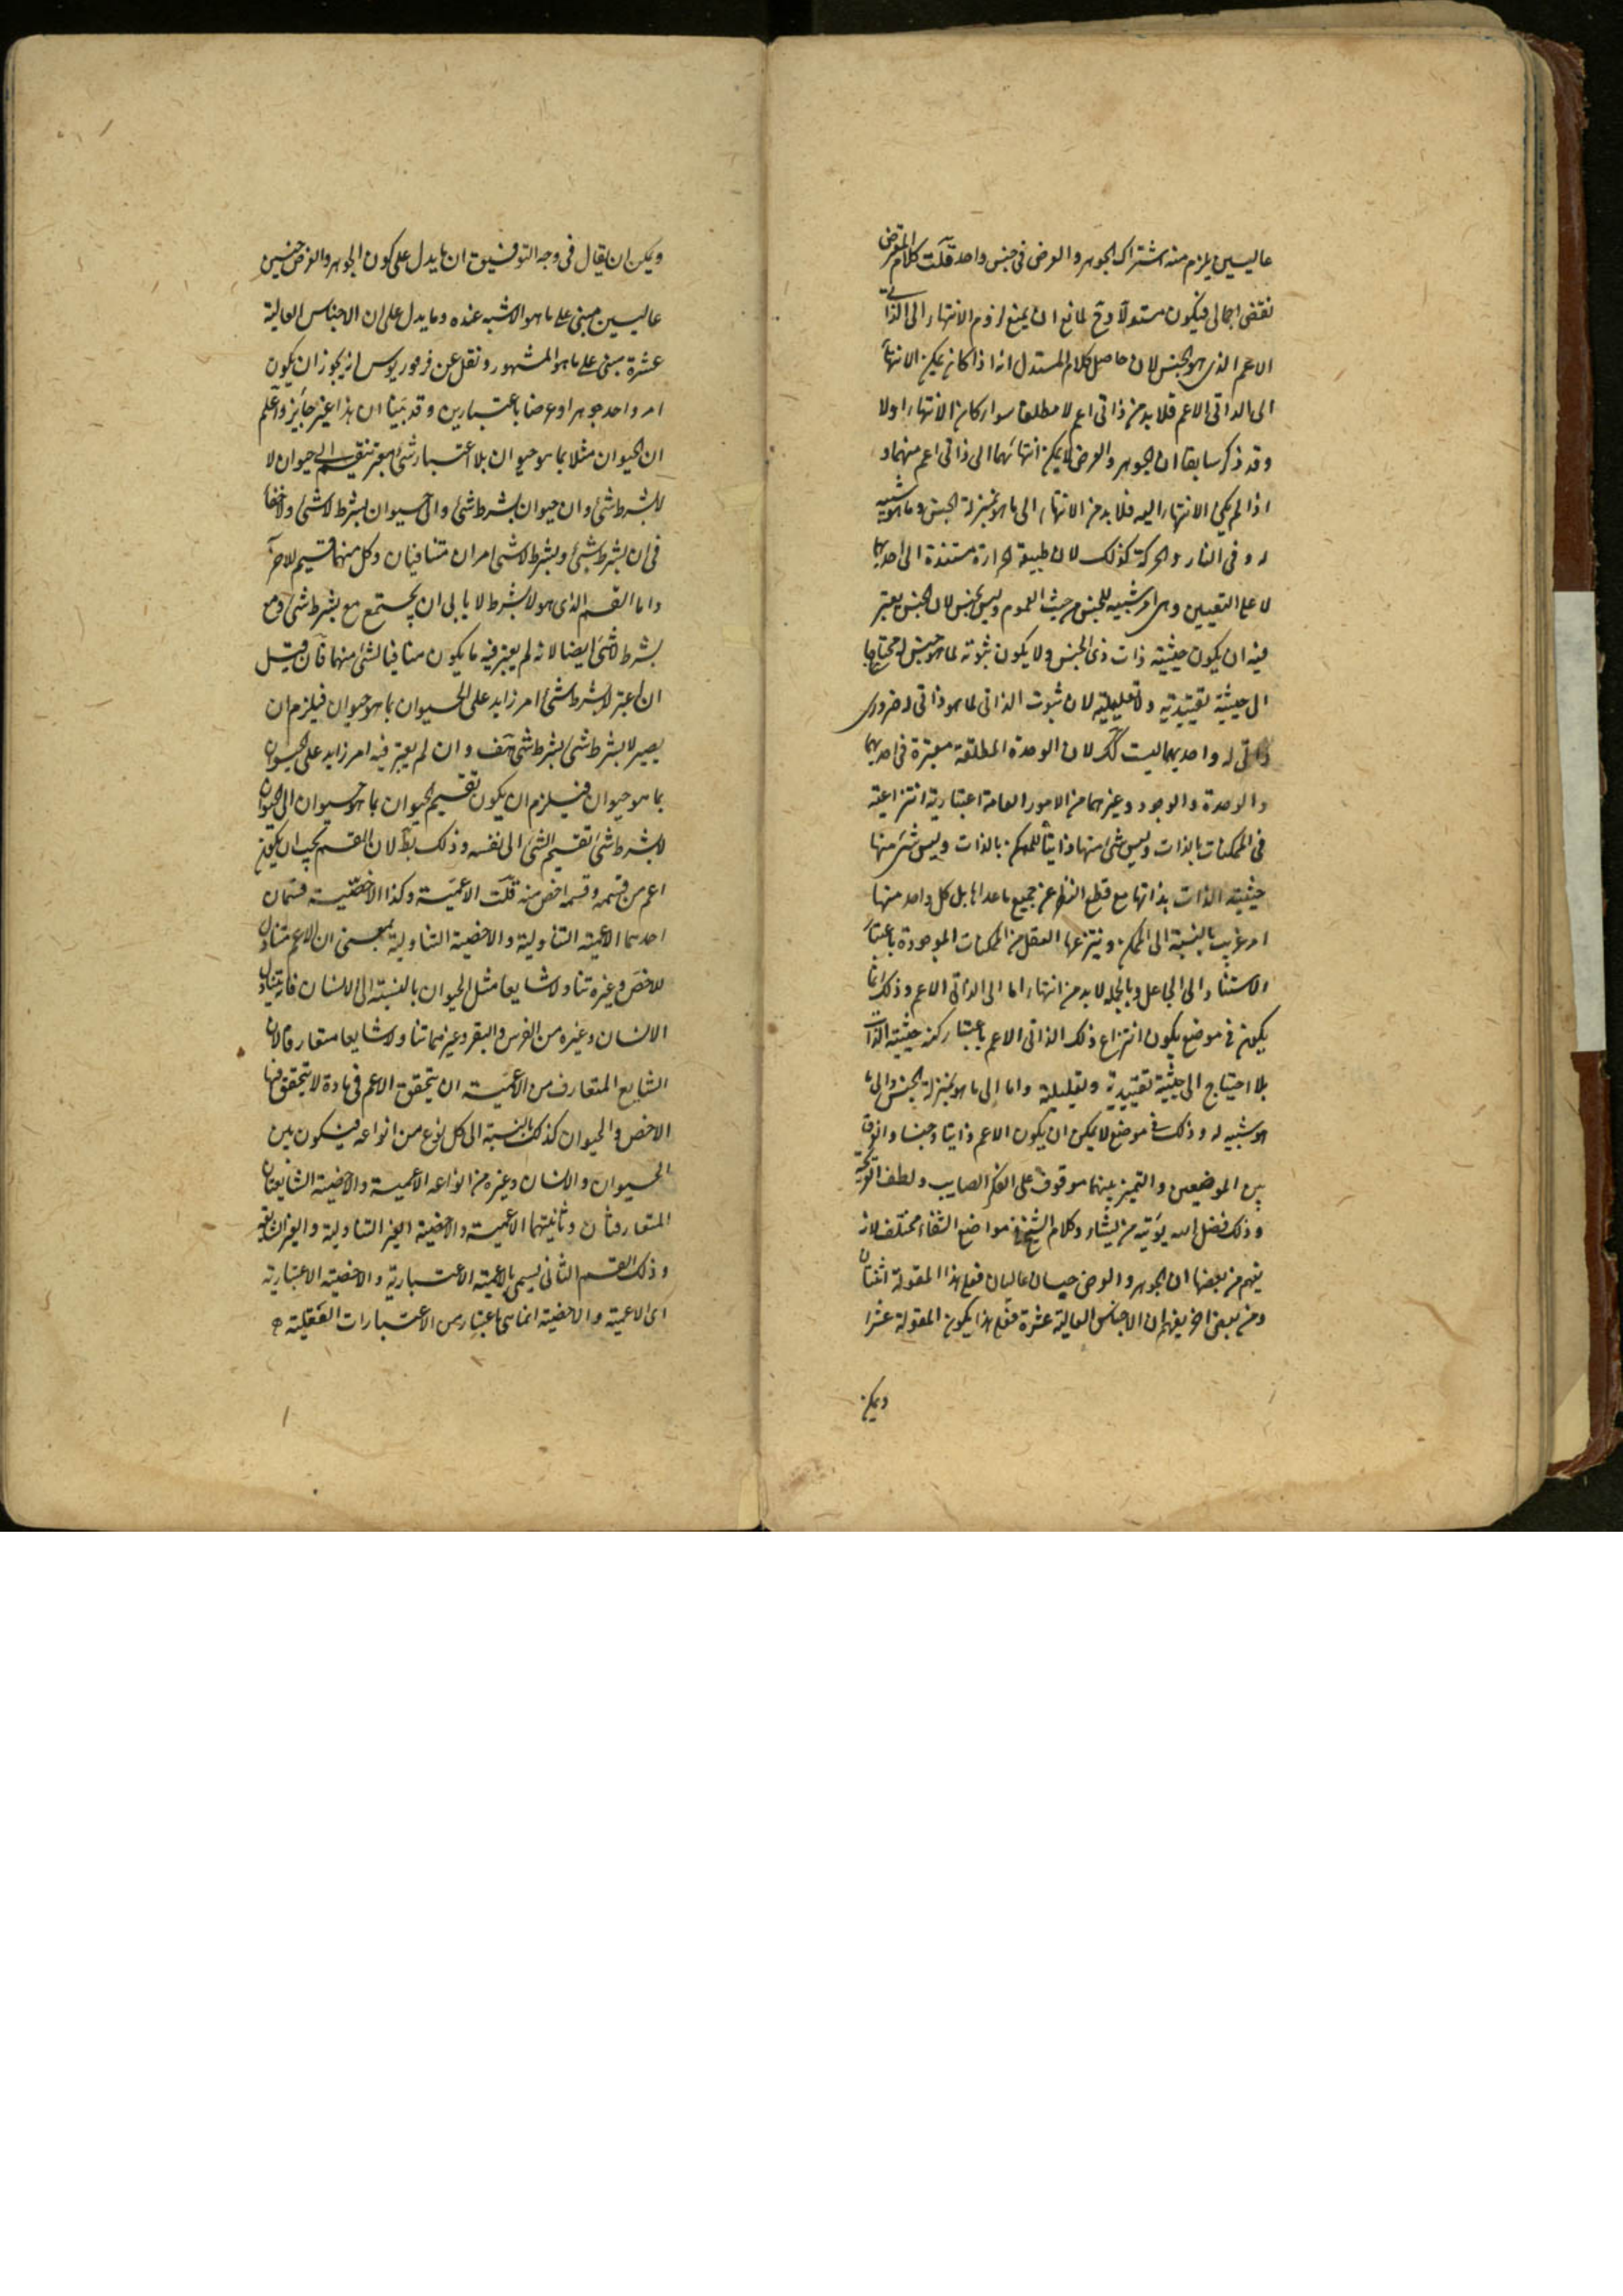 عاليين يلزم منه اشتراك الجوهر والعرض في جنس واحد قلت كلام المعترض
نقض اجمالي فيكون مستدلا وح لمانع ان يمنع لزوم الانتهاء الى الذاتي
الاعم الذي هو الجنس لان حاصل كلام المستدل انه اذا كان يمكن الانتهاء
الى الذاتي الاعم فلا بد من ذاتي اعم لا مطلقا سواء كان الانتهاء اولا
وقد ذكر سابقا ان الجوهر والعرض لا يمكن انتهائهما الى ذاتي اعم منهما و
اذا لم يكن الانتهاء اليه فلا بد من الانتهاء الى ما هو بمنزلة الجنس وما هو شبيه
له وفي النار والحركة كذلك لان طبيعة الحرارة مستندة الى احديهما
لا على التعيين وهي امر شبيه للجنس من حيث العموم وليس بجنس لان الجنس يعتبر
فيه ان يكون حيثيته ذات ذي الجنس ولا يكون ثبوته لما هو جنس له محتاجا
الى حيثية تقييدية ولا تعليلية لان ثبوت الذاتي لما هو ذاتي له ضروري
ذاتي له واحديهما ليست كك لان الوحدة المطلقة معتبرة في احديهما
والوحدة والوجود وغيرهما من الامور العامة اعتبارية انتزاعية
في الممكنات بالذات وليس شئ منها ذاتيا للممكن بالذات وليس شئ منها
حيثيته الذات بذاتها مع قطع النظر عن جميع ما عداها بل كل واحد منها
امر غريب بالنسبة الى الممكن وينتزعها العقل من الممكنات الموجودة باعتبار
الاستناد الى الجاعل وبالجملة لا بد من انتهاء اما الى الذاتي الاعم وذلك انما
يكون في موضع يكون انتزاع ذلك الذاتي الاعم باعتبار كنه حيثيته الذات
بلا احتياج الى حيثية تقييدية وتعليلية واما الى ما هو بمنزلة الجنس والى ما
هو شبيه له وذلك في موضع لا يمكن ان يكون الاعم ذاتيا وجنسا والفرق
بين الموضعين والتميز بينهما موقوف على الفكر الصايب ولطف القريحة
وذلك فضل الله يؤتيه من يشاء وكلام الشيخ في مواضع الشفاء مختلف لانه
يفهم من بعضها ان الجوهر والعرض جنسان عاليان فعلى هذا المقولة اثنتان
ومن بعض اخر يفهم ان الاجناس العالية عشرة فعلى هذا يكون المقولة عشرا
ويمكن
ويمكن ان يقال في وجه التوفيق ان ما يدل على كون الجوهر والعرض جنسين
عاليين مبني على ما هو الاشبه عنده وما يدل على ان الاجناس العالية
عشرة مبني على ما هو المشهور ونقل عن فرفوريوس انه يجوز ان يكون
امر واحد جوهرا وعرضا باعتبارين وقد بينا ان هذا غير جايز واعلم
ان الحيوان مثلا بما هو حيوان بلا اعتبار شئ اخر تنقسم الى حيوان لا
لابشرط شئ وان حيوان بشرط شئ والى حيوان بشرط لا شئ ولا خفاء
في ان بشرط شئ وبشرط لا شئ امران متنافيان وكل منهما قسيم للاخر
واما القسم الذي هو لا بشرط لا يابى ان يجتمع مع بشرط شئ ومع
بشرط لا شئ ايضا لانه لم يعتبر فيه ما يكون منافيا لشئ منهما فان قيل
ان اعتبر لا بشرط شئ امر زايد على الحيوان بما هو حيوان فيلزم ان
يصير لا بشرط شئ بشرط شئ هف وان لم يعتبر فيه امر زايد على الحيوان
بما هو حيوان فيلزم ان يكون تقسيم الحيوان بما هو حيوان الى الحيوان
لا بشرط شئ تقسيم الشئ الى نفسه وذلك بط لان القسم يجب ان يكون
اعم من قسمه وقسمه اخص منه قلت الاعمية وكذا الاخصية قسمان
احدهما الاعمية التناولية والاخصية التناولية بمعنى ان الاعم متناول
للاخص وغيره تناولا شايعا مثل الحيوان بالنسبة الى الانسان فانه يتناول
الانسان وغيره من الفرس والبقر وغيرهما تناولا شايعا متعارفا لان
الشايع المتعارف من الاعمية ان يتحقق الاعم في مادة لا يتحقق فيها
الاخص والحيوان كذلك بالنسبة الى كل نوع من انواعه فيكون بين
الحيوان والانسان وغيره من انواعه الاعمية والاخصية الشايعتان
المتعارفتان وثانيتهما الاعمية والاخصية الغير التناولية والغير الشايعة
وذلك القسم الثاني يسمى بالاعمية الاعتبارية والاخصية الاعتبارية
اى الاعمية والاخصية انما هي باعتبار من الاعتبارات العقلية